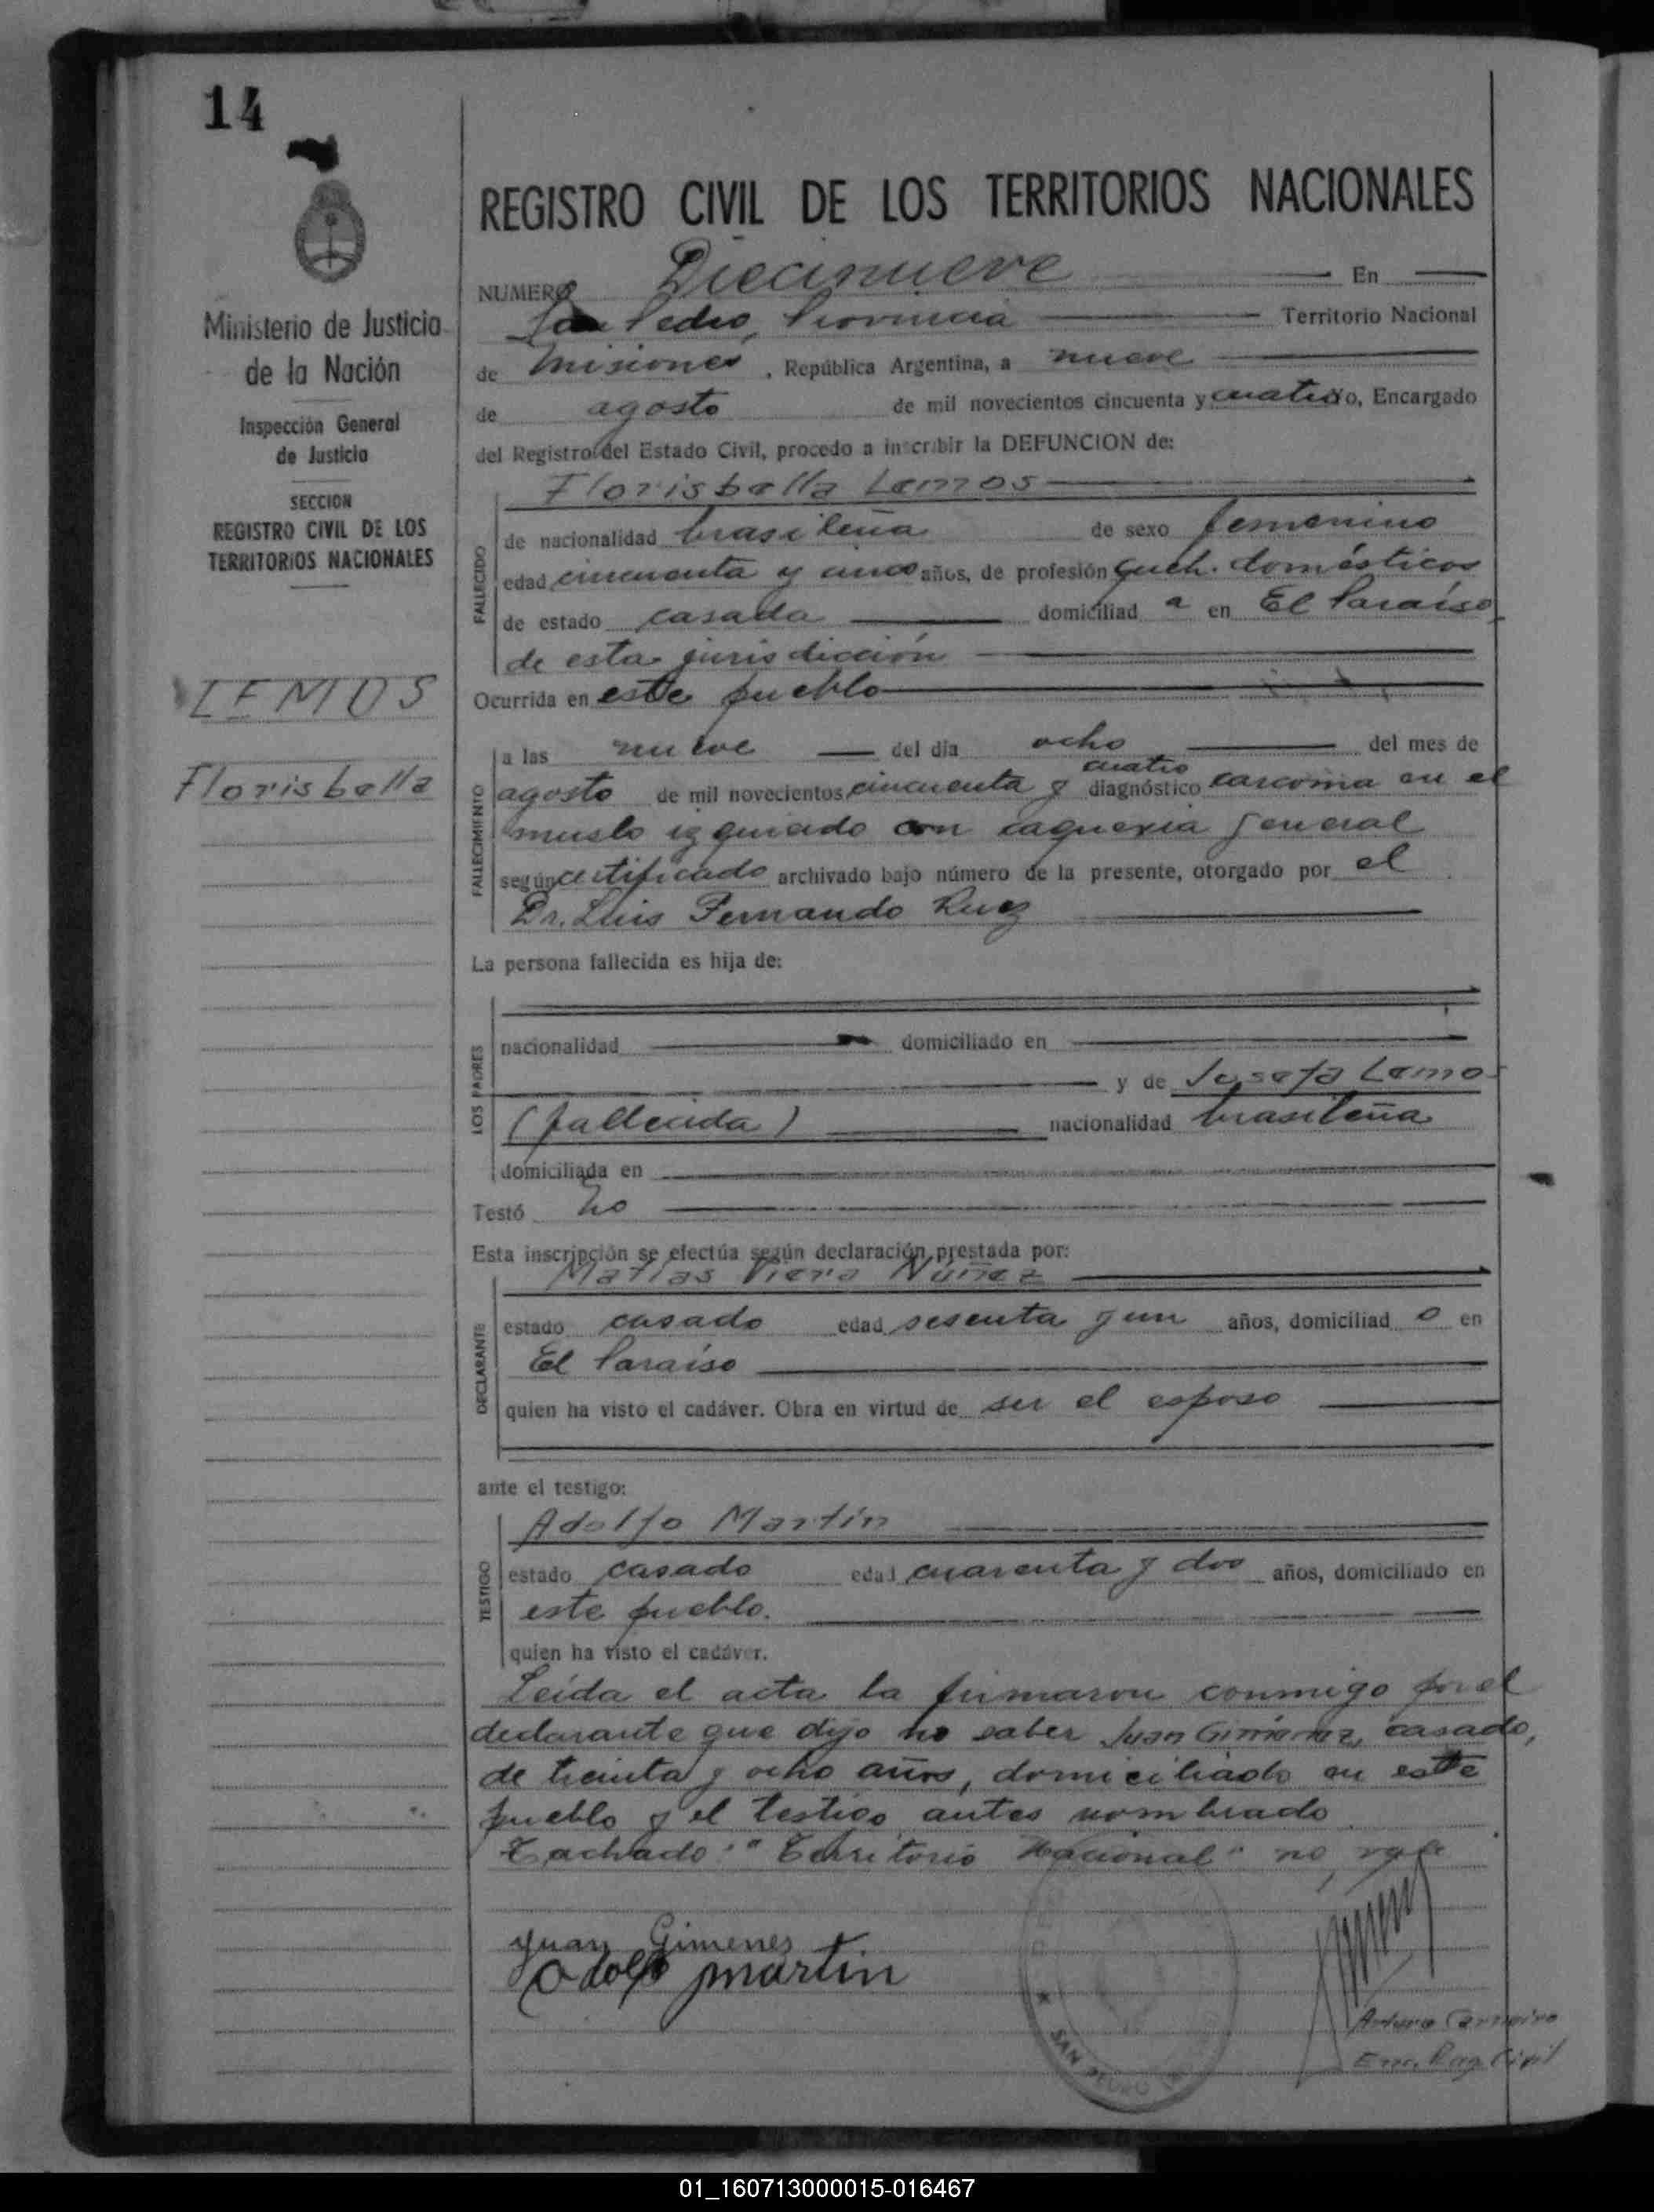 14
REGISTRO CIVIL DE LOS TERRITORIOS NACIONALES
Ministerio de Justicia
de la Nación
Inspección General
de Justicia
SECCION
REGISTRO CIVIL DE LOS
TERRITORIOS NACIONALES
LEMOS
Florisbella
NUMERO Diecinueve En
San Pedro, Provincia Territorio Nacional
de Misiones, República Argentina, a nueve
de agosto de mil novecientos cincuenta y cuatro, Encargado
del Registro del Estado Civil, procedo a inscribir la DEFUNCION de:
FALLECIDO
Florisbella Lemos
de nacionalidad brasileña de sexo femenino
edad cincuenta y cinco años, de profesión queh. domésticos
de estado casada domiciliad a en El Paraíso,
de esta jurisdicción
Ocurrida en este pueblo
FALLECIMIENTO
a las nueve del día ocho del mes de
cuatro
agosto de mil novecientos cincuenta y diagnóstico carcoma en el
muslo izquierdo con caquexia general
según certificado archivado bajo número de la presente, otorgado por el
Dr. Luis Fernando Ruez
La persona fallecida es hija de:
LOS PADRES
nacionalidad domiciliado en
y de Josefa Lemos
(fallecida) nacionalidad brasileña
domiciliada en
Testó no
Esta inscripción se efectúa según declaración prestada por:
DECLARANTE
Matías Viera Núñez
estado casado edad sesenta y un años, domiciliad o en
El Paraíso
quien ha visto el cadáver. Obra en virtud de ser el esposo
ante el testigo:
TESTIGO
Adolfo Martín
estado casado edad cuarenta y dos años, domiciliado en
este pueblo.
quien ha visto el cadáver.
Leída el acta la firmaron conmigo por el
declarante que dijo no saber Juan Giménez, casado,
de treinta y ocho años, domiciliado en este
pueblo y el testigo antes nombrado
Tachado: "Territorio Nacional" no vale
Juan Gimenes
Adolfo martin
SAN PEDRO
Arturo Carneiro
Enc. Reg. Civil
01_160713000015-016467